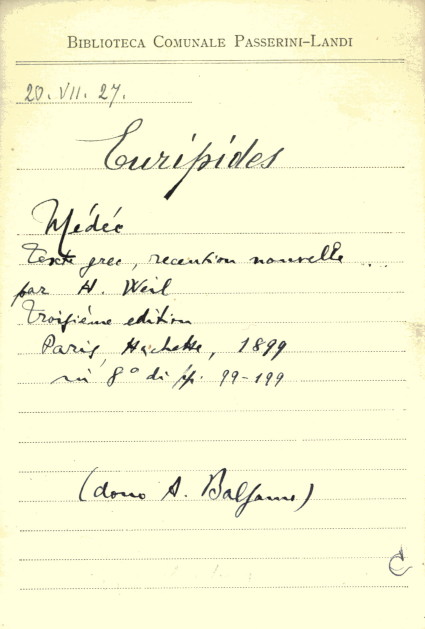 BIBLIOTECA COMUNALE PASSERINI-LANDI
20. VII. 27.
Euripides
Médée
Texte grec, recention nouvelle ...
par H. Weil
Troisième edition
Paris, Hachette, 1899
in 8° di pp. 99-199
(dono A. Balsamo)
C